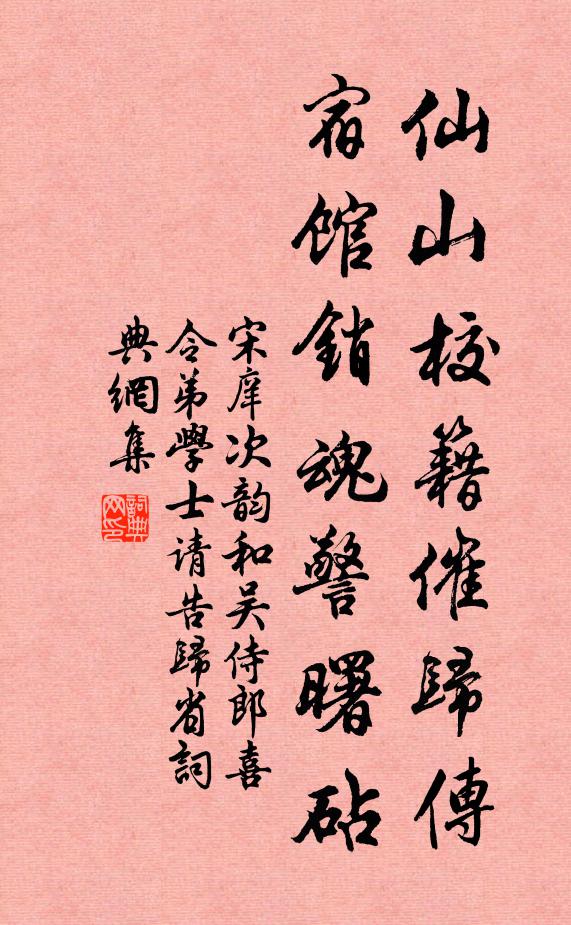 仙山校籍催歸傳
宿館銷魂警曙砧
宋庠次韵和吴侍郎喜
令弟學士请告歸省詞
典網集
詞典
网印